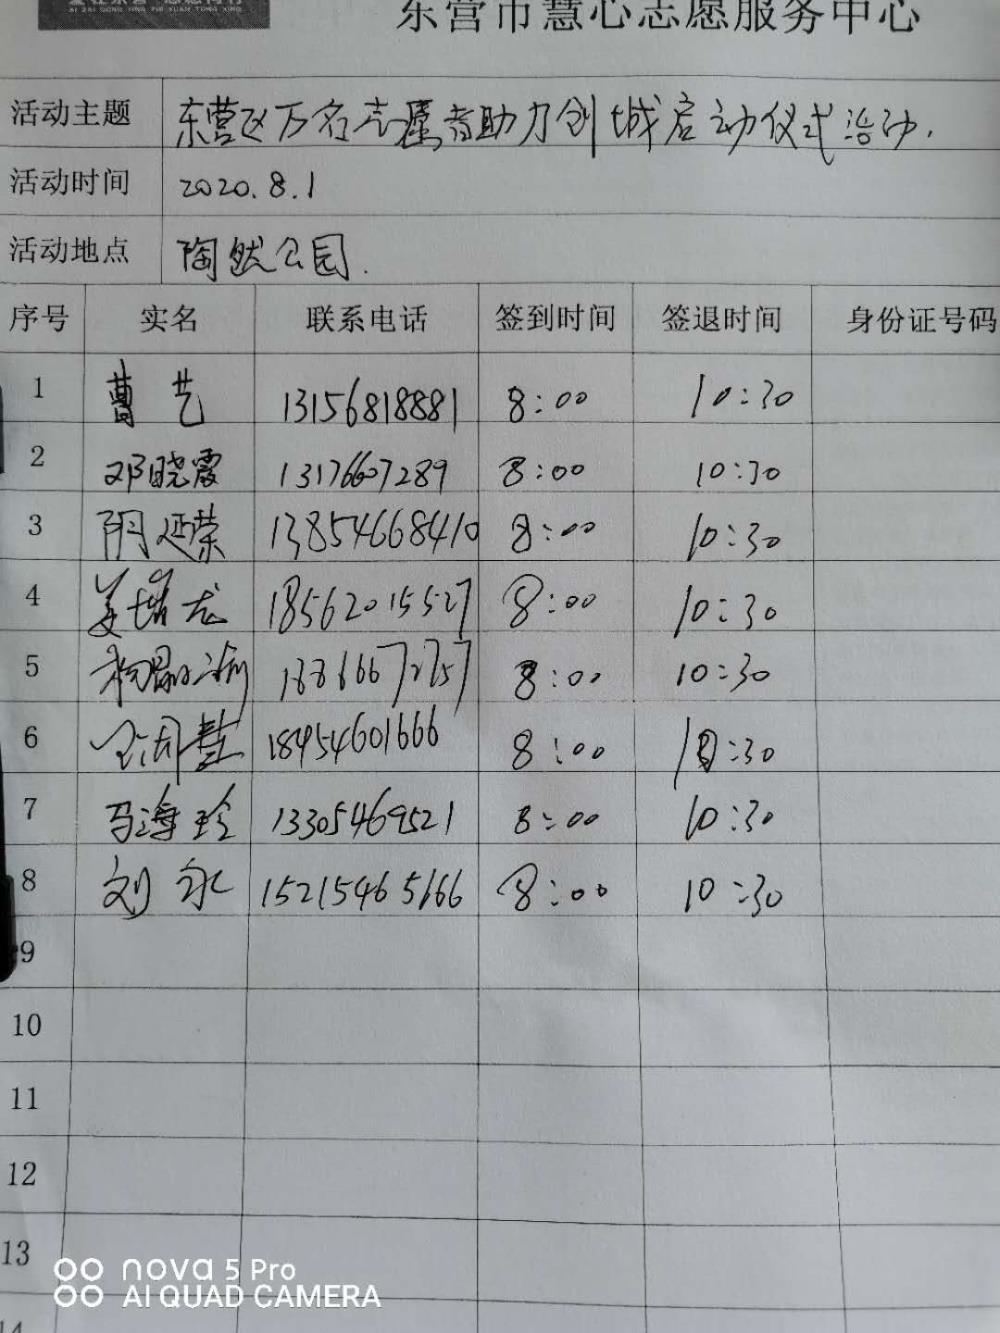 AI ZAI DONG YING YUAN TONG XING
东营市慧心志愿服务中心
活动主题 东营区万名志愿者助力创城启动仪式活动.
活动时间 2020.8.1
活动地点 陶然公园.
序号 实名 联系电话 签到时间 签退时间 身份证号码
1 曹艺 13156818881 8:00 10:30
2 邓晓霞 13176607289 8:00 10:30
3 阴延荣 13854668410 8:00 10:30
4 姜瑞龙 18562015527 8:00 10:30
5 8:00 10:30
6 18454601666 8:00 10:30
7 马海玲 13305469521 8:00 10:30
8 刘永 15215465666 8:00 10:30
9
10
11
12
13
14
nova 5 Pro
AI QUAD CAMERA